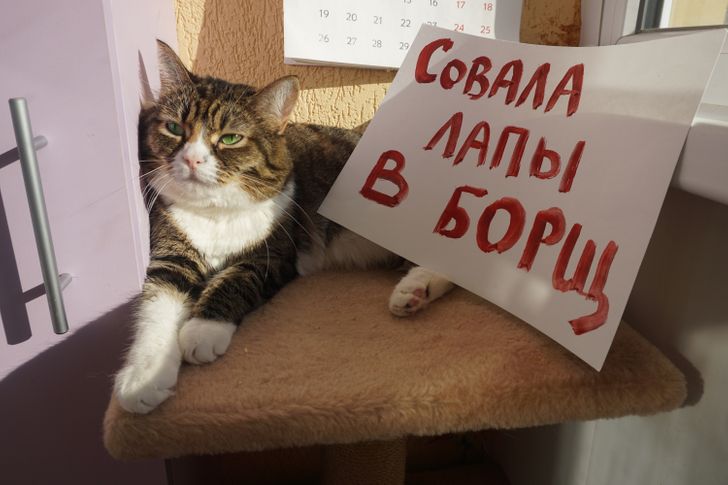 15 16 17 18
19 20 21 22 23 24 25
26 27 28 29
СОВАЛА
ЛАПЫ
В БОРЩ